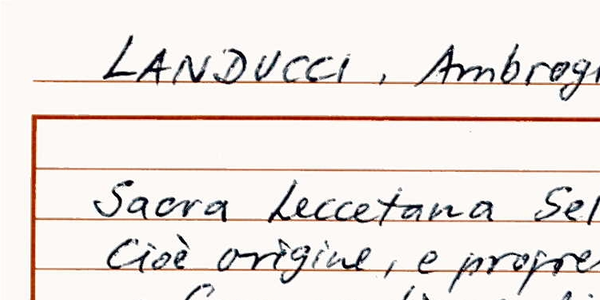 LANDUCCI, Ambrogi
Sacra Leccetana Sel
Cioè origine, e propre